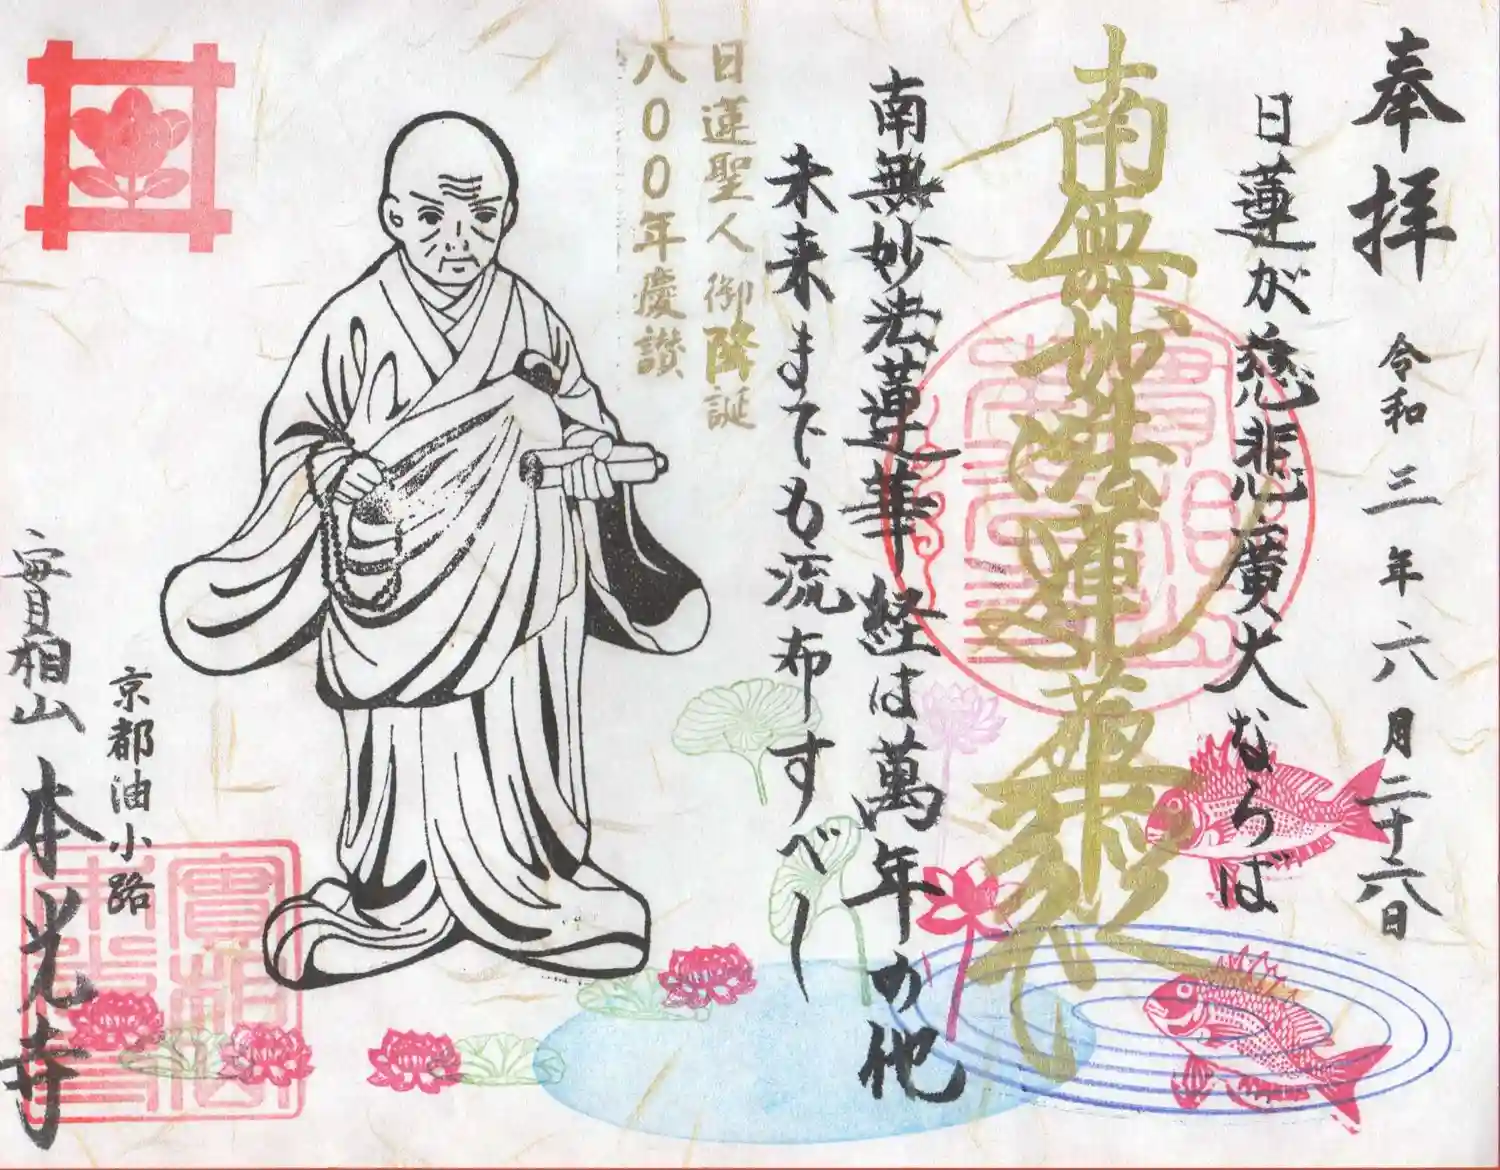 奉拝
令和三年六月二十六日
日蓮が慈悲廣大ならば
南無妙法蓮華経
南無妙法蓮華経は萬年の他
未来までも流布すべし
日蓮聖人御降誕
八〇〇年慶讃
京都油小路
實相山 本光寺